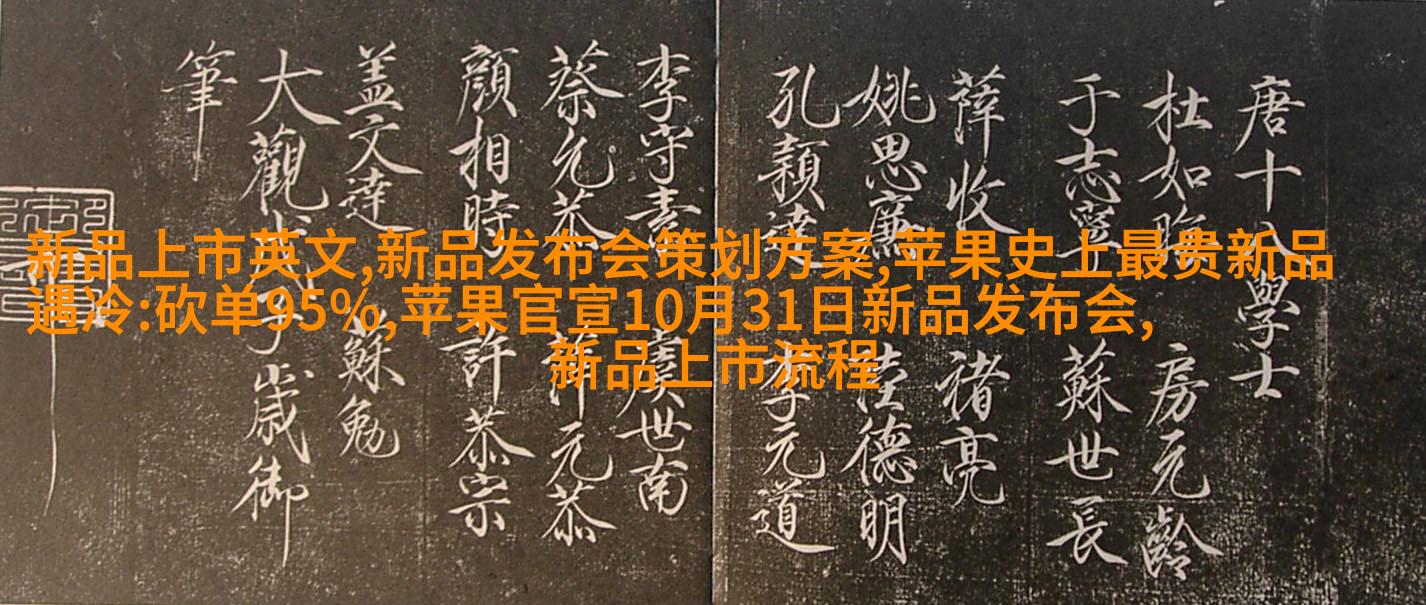 唐十八學士
杜如晦 房元齡
于志寧 蘇世長
薛收 褚亮
姚思廉 陸德明
孔穎達 李元道
李守素 虞世南
蔡允恭 薛元恭
顏相時 許恭宗
盖文達 蘇勉
大觀戊子歲御
筆
新品上市英文,新品发布会策划方案,苹果史上最贵新品
遇冷:砍单95%,苹果官宣10月31日新品发布会,
新品上市流程